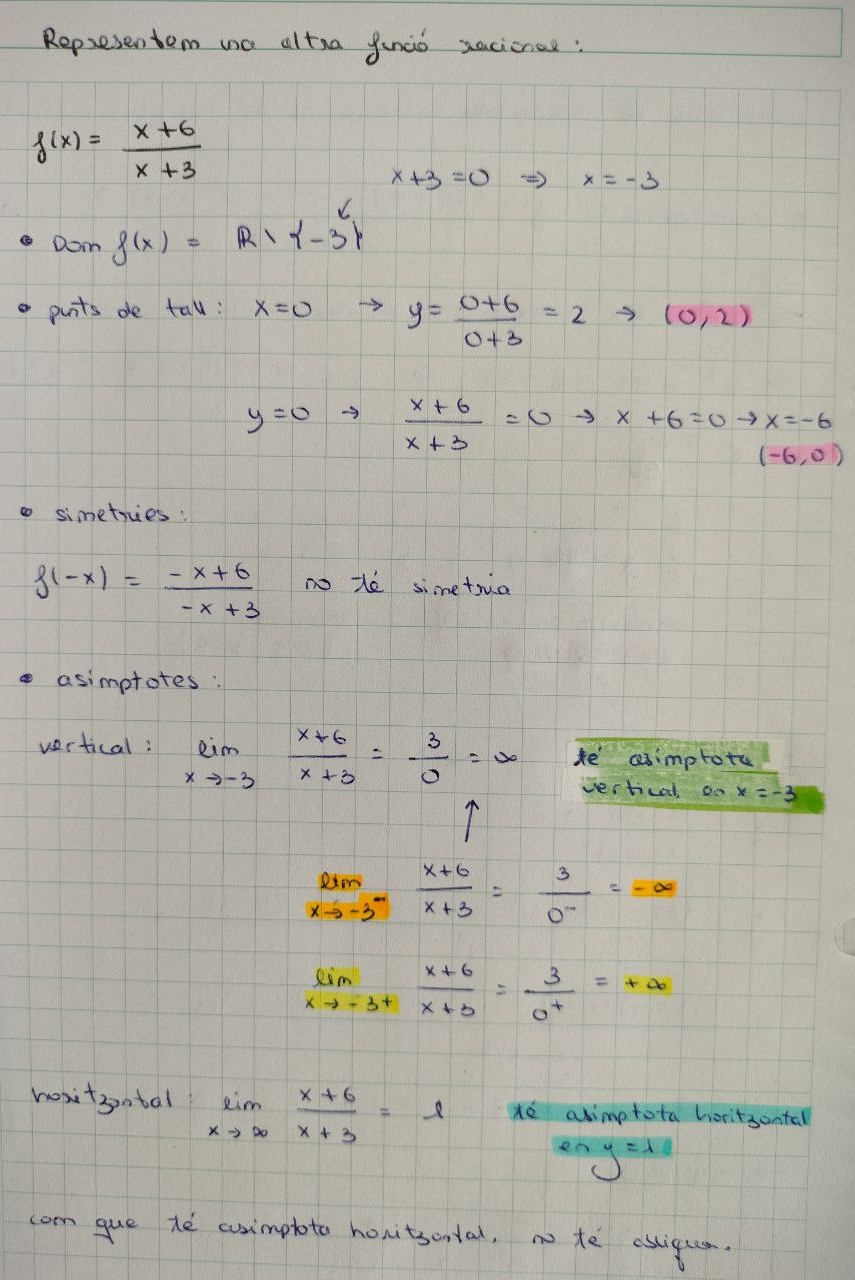 Representem una altra funció racional:
f(x) = x+6 / x+3
x+3=0 ⇒ x=-3
• Dom f(x) = ℝ \ {-3}
• punts de tall: x=0 → y= 0+6 / 0+3 = 2 → (0,2)
y=0 → x+6 / x+3 = 0 → x+6=0 → x=-6
(-6,0)
• simetries:
f(-x) = -x+6 / -x+3 no té simetria
• asimptotes:
vertical: lim x→-3 x+6 / x+3 = 3 / 0 = ∞ té asimptota
vertical en x=-3
↑
lim x→-3⁻ x+6 / x+3 = 3 / 0⁻ = -∞
lim x→-3+ x+6 / x+3 = 3 / 0⁺ = +∞
horitzontal: lim x→∞ x+6 / x+3 = 1 té asimptota horitzontal
en y=1
com que té asimptota horitzontal, no té obliqua.